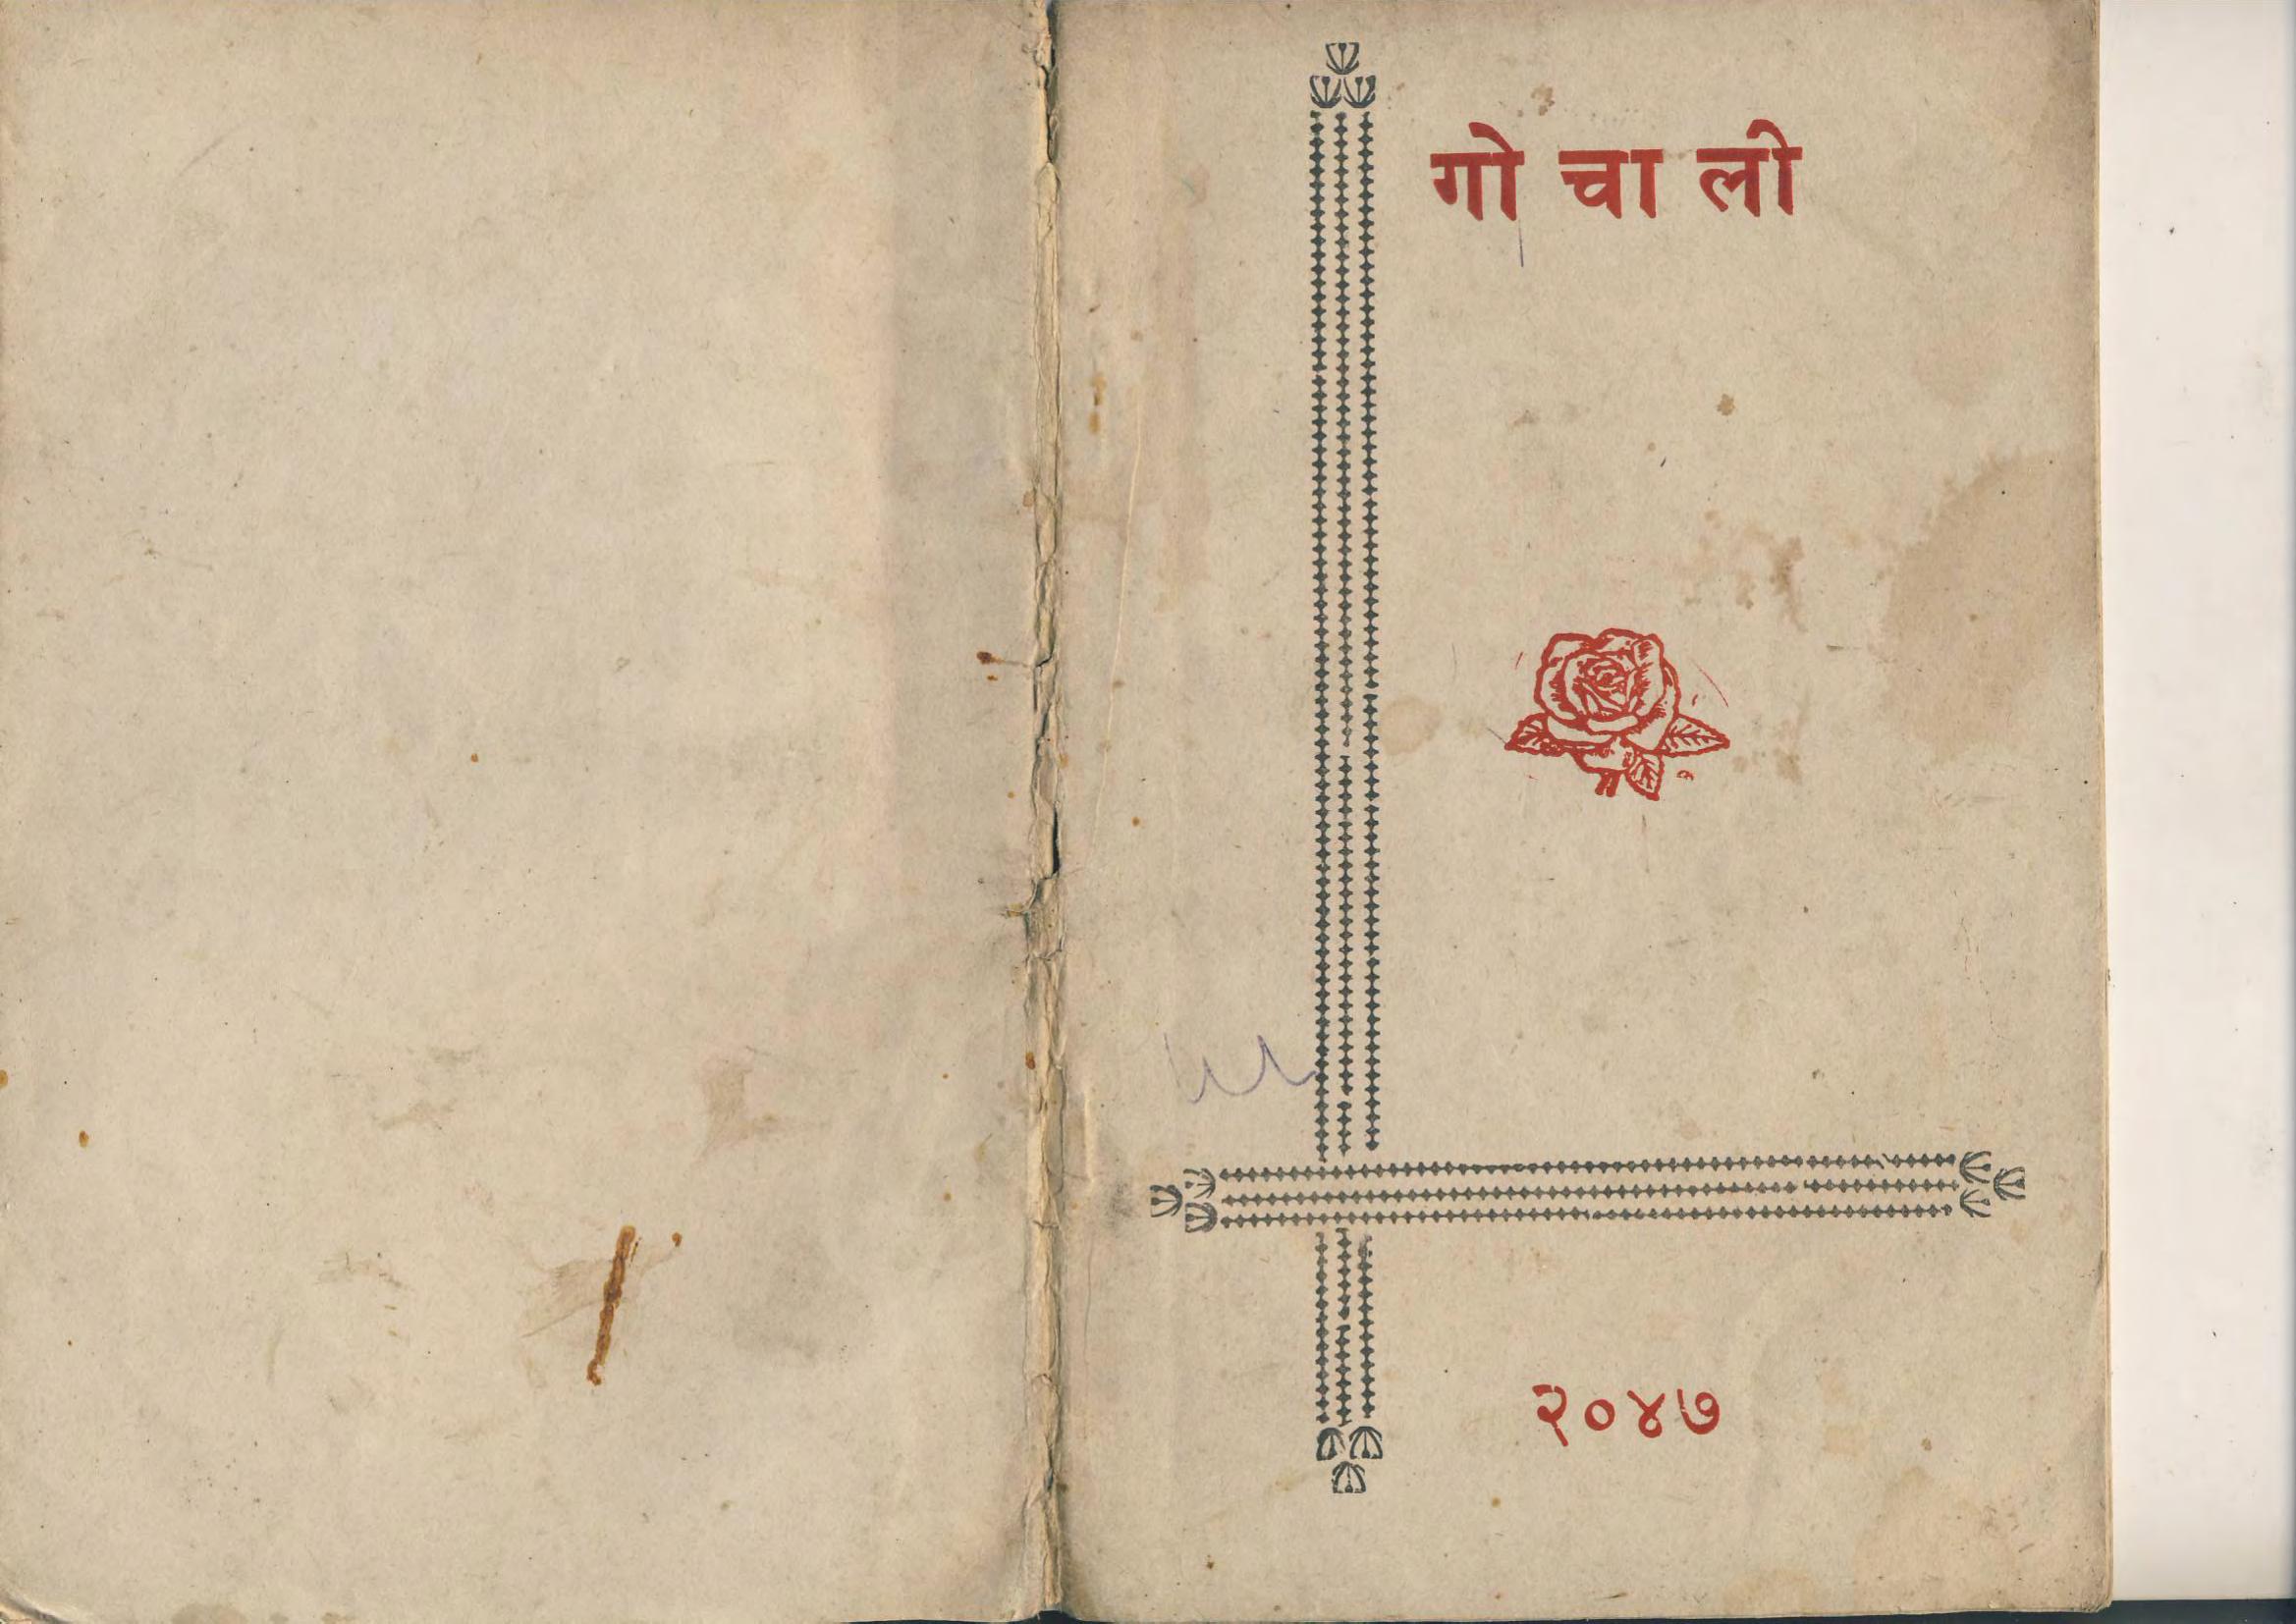 गो चा ली
२०४७